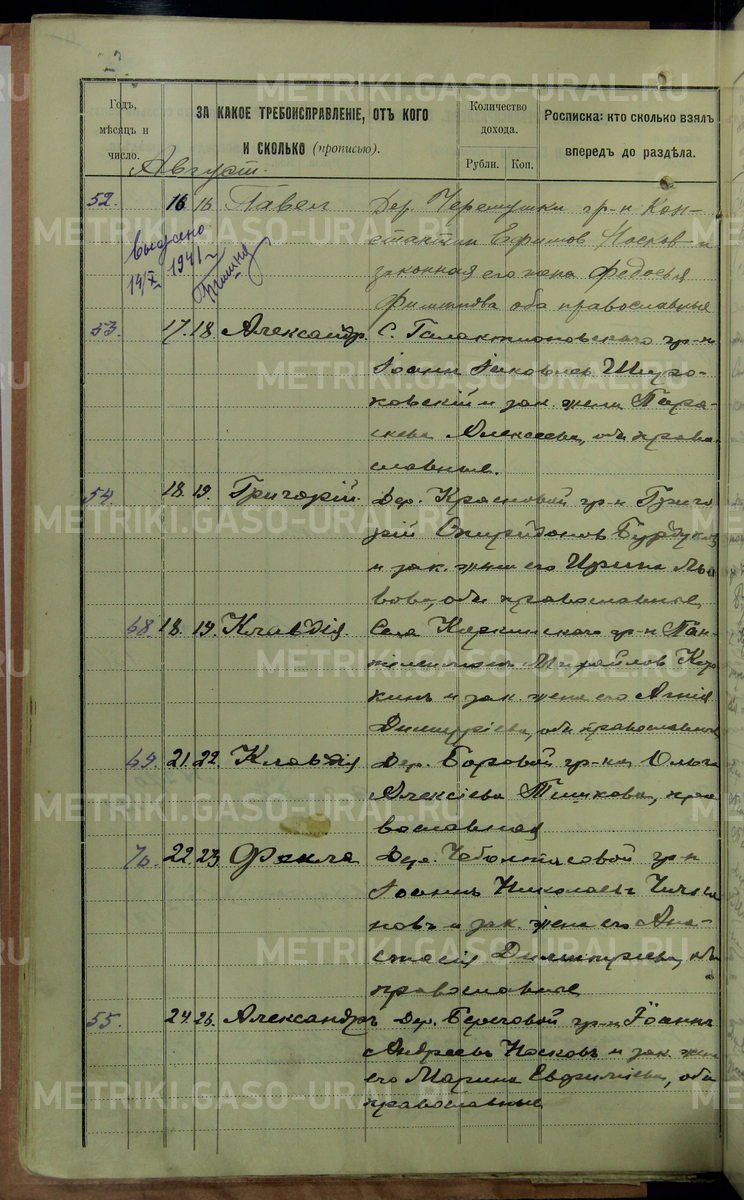 Годъ, мѣсяцъ и число.
ЗА КАКОЕ ТРЕБОИСПРАВЛЕНІЕ, ОТЪ КОГО И СКОЛЬКО (прописью).
Количество дохода.
Рубли. Коп.
Росписка: кто сколько взялъ впередъ до раздѣла.
Август.
52. 16 18 Павел Дер. Черемушки гр-н Кон-
стактин Ефимов Носков и
законная его жена Федосья
Филиппова оба православные
Выдано
14/X 1941 г
53. 17. 18. Александр. С. Галактионовского гр-н
Іоанн Іаковлев Широ-
ковскій и зак. жена Пара-
скева Алексеева, оба право
славные.
54. 18. 19. Григорій. Дер. Красновой гр-н Григо
рій Спиридонов
и зак. жена его Ирина Ль
вова, оба православные
68. 18. 19. Клавдія. Села гр-н Пан-
Михайлов Кор
кинъ и зак. жена его Агнія
Димитріева, оба православные
69. 21. 22. Клавдія Дер. Боровой гр-ка Ольга
Алексіева Тишкова, пра
вославная
70. 22 23 Фекла Дер. гр-н
Іоаннъ Николаевъ
новъ и зак. жена его Ана-
стасія Димитріева, оба
православные
55. 24. 26. Александръ Дер. Береговой гр-н Іоаннъ
Андреевъ Носковъ и зак. жена
его Марина Евфиміева, оба
православные
METRIKI.GASO-URAL.RU